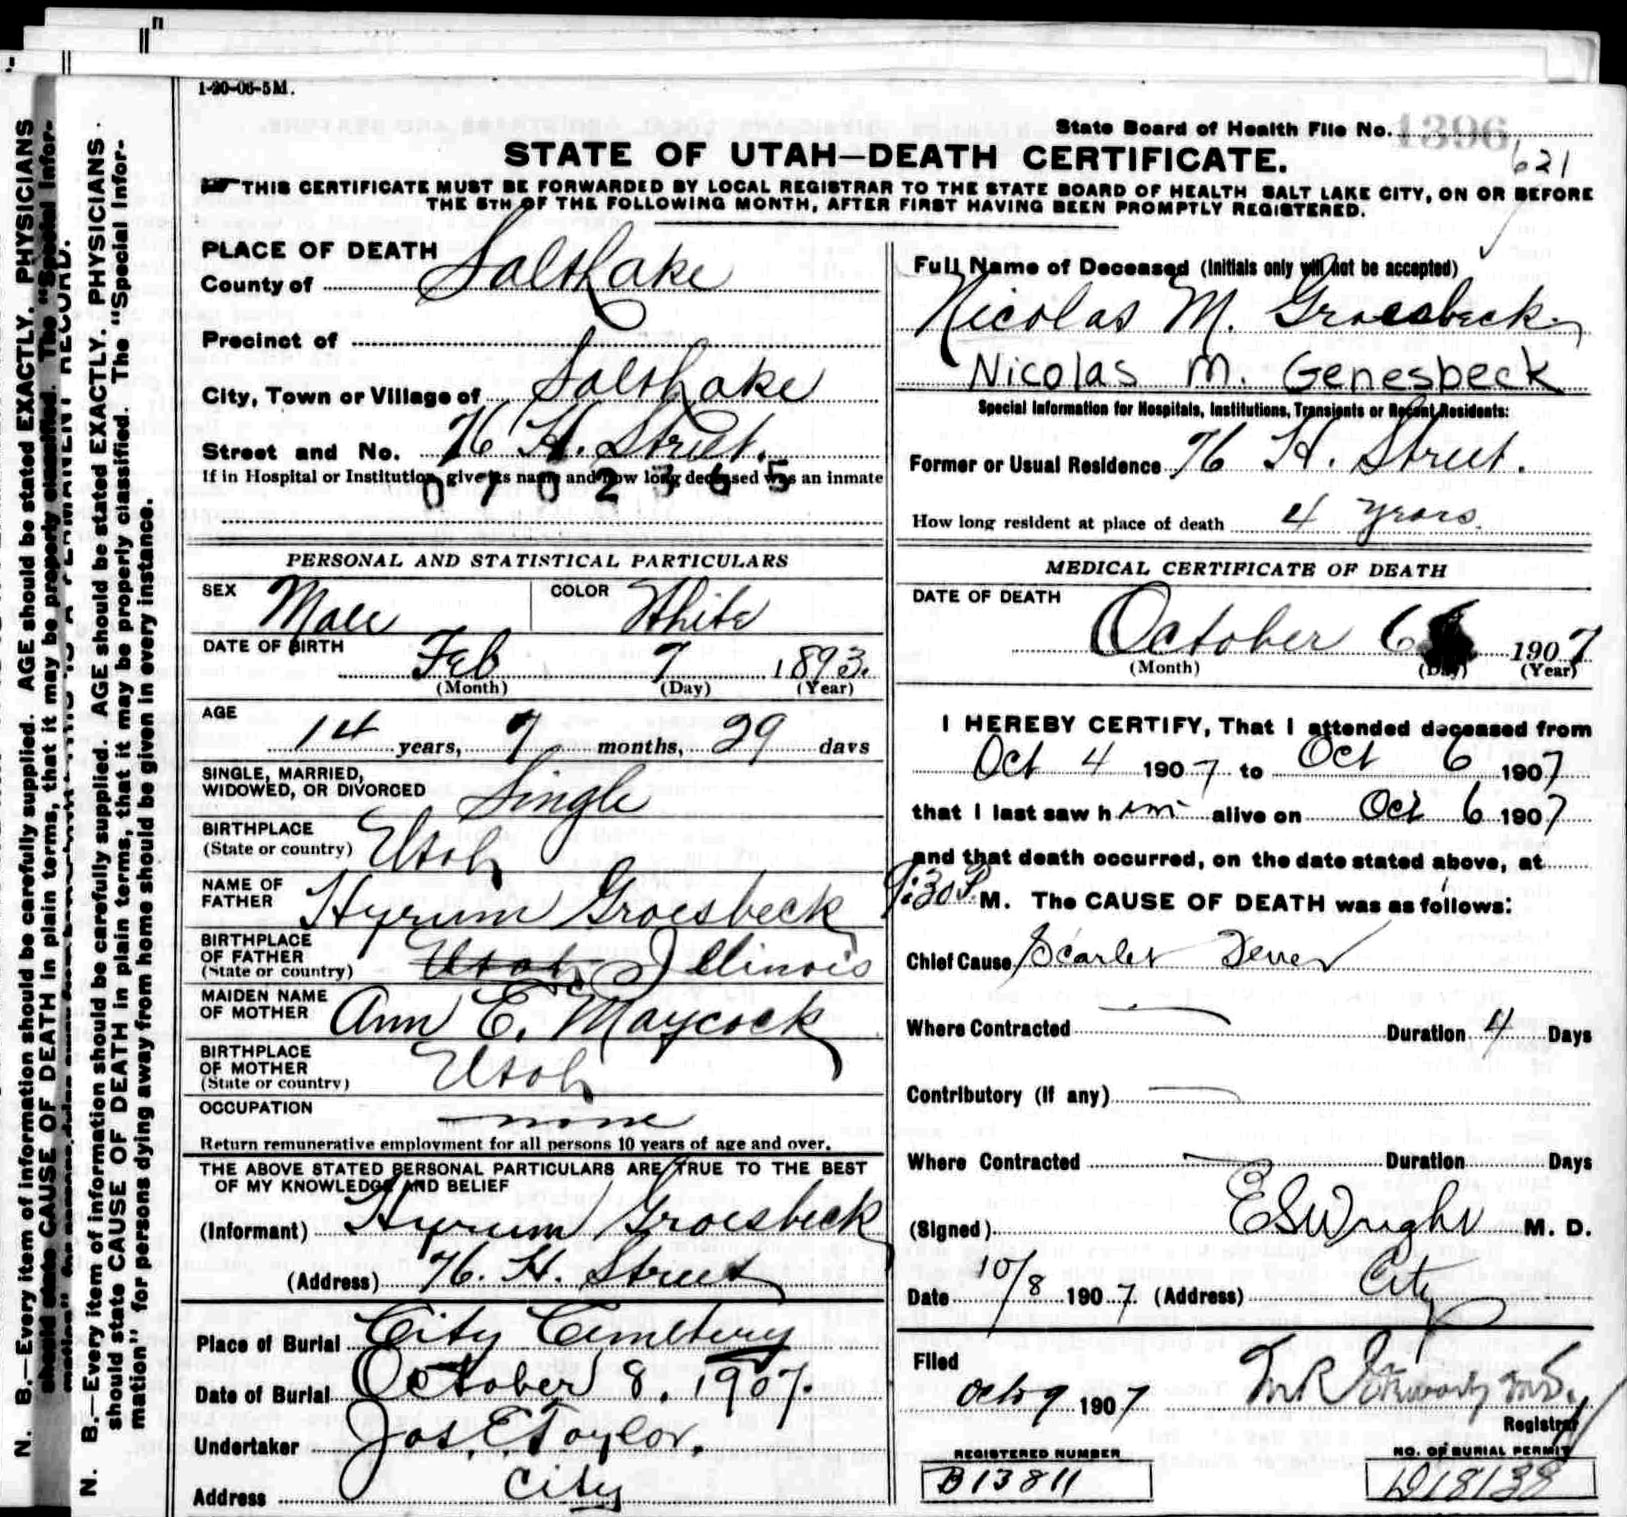 1-20-06-5M.
State Board of Health File No. 1396
621
STATE OF UTAH—DEATH CERTIFICATE.
THIS CERTIFICATE MUST BE FORWARDED BY LOCAL REGISTRAR TO THE STATE BOARD OF HEALTH SALT LAKE CITY, ON OR BEFORE
THE 5TH OF THE FOLLOWING MONTH, AFTER FIRST HAVING BEEN PROMPTLY REGISTERED.
PLACE OF DEATH
County of Salt Lake
Precinct of
City, Town or Village of Salt Lake
Street and No. 76 H. Street.
If in Hospital or Institution, give its name and how long deceased was an inmate
0702365
PERSONAL AND STATISTICAL PARTICULARS
SEX Male COLOR White
DATE OF BIRTH
Feb 7 1893.
(Month) (Day) (Year)
AGE
14 years, 7 months, 29 days
SINGLE, MARRIED,
WIDOWED, OR DIVORCED Single
BIRTHPLACE
(State or country) Utah
NAME OF
FATHER Hyrum Groesbeck
BIRTHPLACE
OF FATHER
(State or country) Utah Illinois
MAIDEN NAME
OF MOTHER Ann E. Maycock
BIRTHPLACE
OF MOTHER
(State or country) Utah
OCCUPATION none
Return remunerative employment for all persons 10 years of age and over.
THE ABOVE STATED PERSONAL PARTICULARS ARE TRUE TO THE BEST
OF MY KNOWLEDGE AND BELIEF
(Informant) Hyrum Groesbeck
(Address) 76. H. Street
Place of Burial City Cemetery
Date of Burial October 8, 1907.
Undertaker Jos. E. Taylor.
Address City
Full Name of Deceased (Initials only will not be accepted)
Nicolas M. Groesbeck
Nicolas M. Genesbeck
Special Information for Hospitals, Institutions, Transients or Recent Residents:
Former or Usual Residence 76 H. Street.
How long resident at place of death 4 years.
MEDICAL CERTIFICATE OF DEATH
DATE OF DEATH
October 6 1907
(Month) (Day) (Year)
I HEREBY CERTIFY, That I attended deceased from
Oct 4 1907 to Oct 6 1907
that I last saw him alive on Oct 6 1907
and that death occurred, on the date stated above, at
9:30 P. M. The CAUSE OF DEATH was as follows:
Chief Cause Scarlet Fever
Where Contracted — Duration 4 Days
Contributory (if any) —
Where Contracted — Duration Days
(Signed) E S Wright M. D.
Date 10/8 1907. (Address) City
Filed
Oct 9 1907
Registrar
REGISTERED NUMBER
B13811
NO. OF BURIAL PERMIT
D18138
N. B.—Every item of information should be carefully supplied. AGE should be stated EXACTLY. PHYSICIANS
should state CAUSE OF DEATH in plain terms, that it may be properly classified. The "Special Infor-
mation" for persons dying away from home should be given in every instance.
N. B.—Every item of information should be carefully supplied. AGE should be stated EXACTLY. PHYSICIANS
should state CAUSE OF DEATH in plain terms, that it may be properly classified. The "Special Infor-
THIS IS A PERMANENT RECORD.